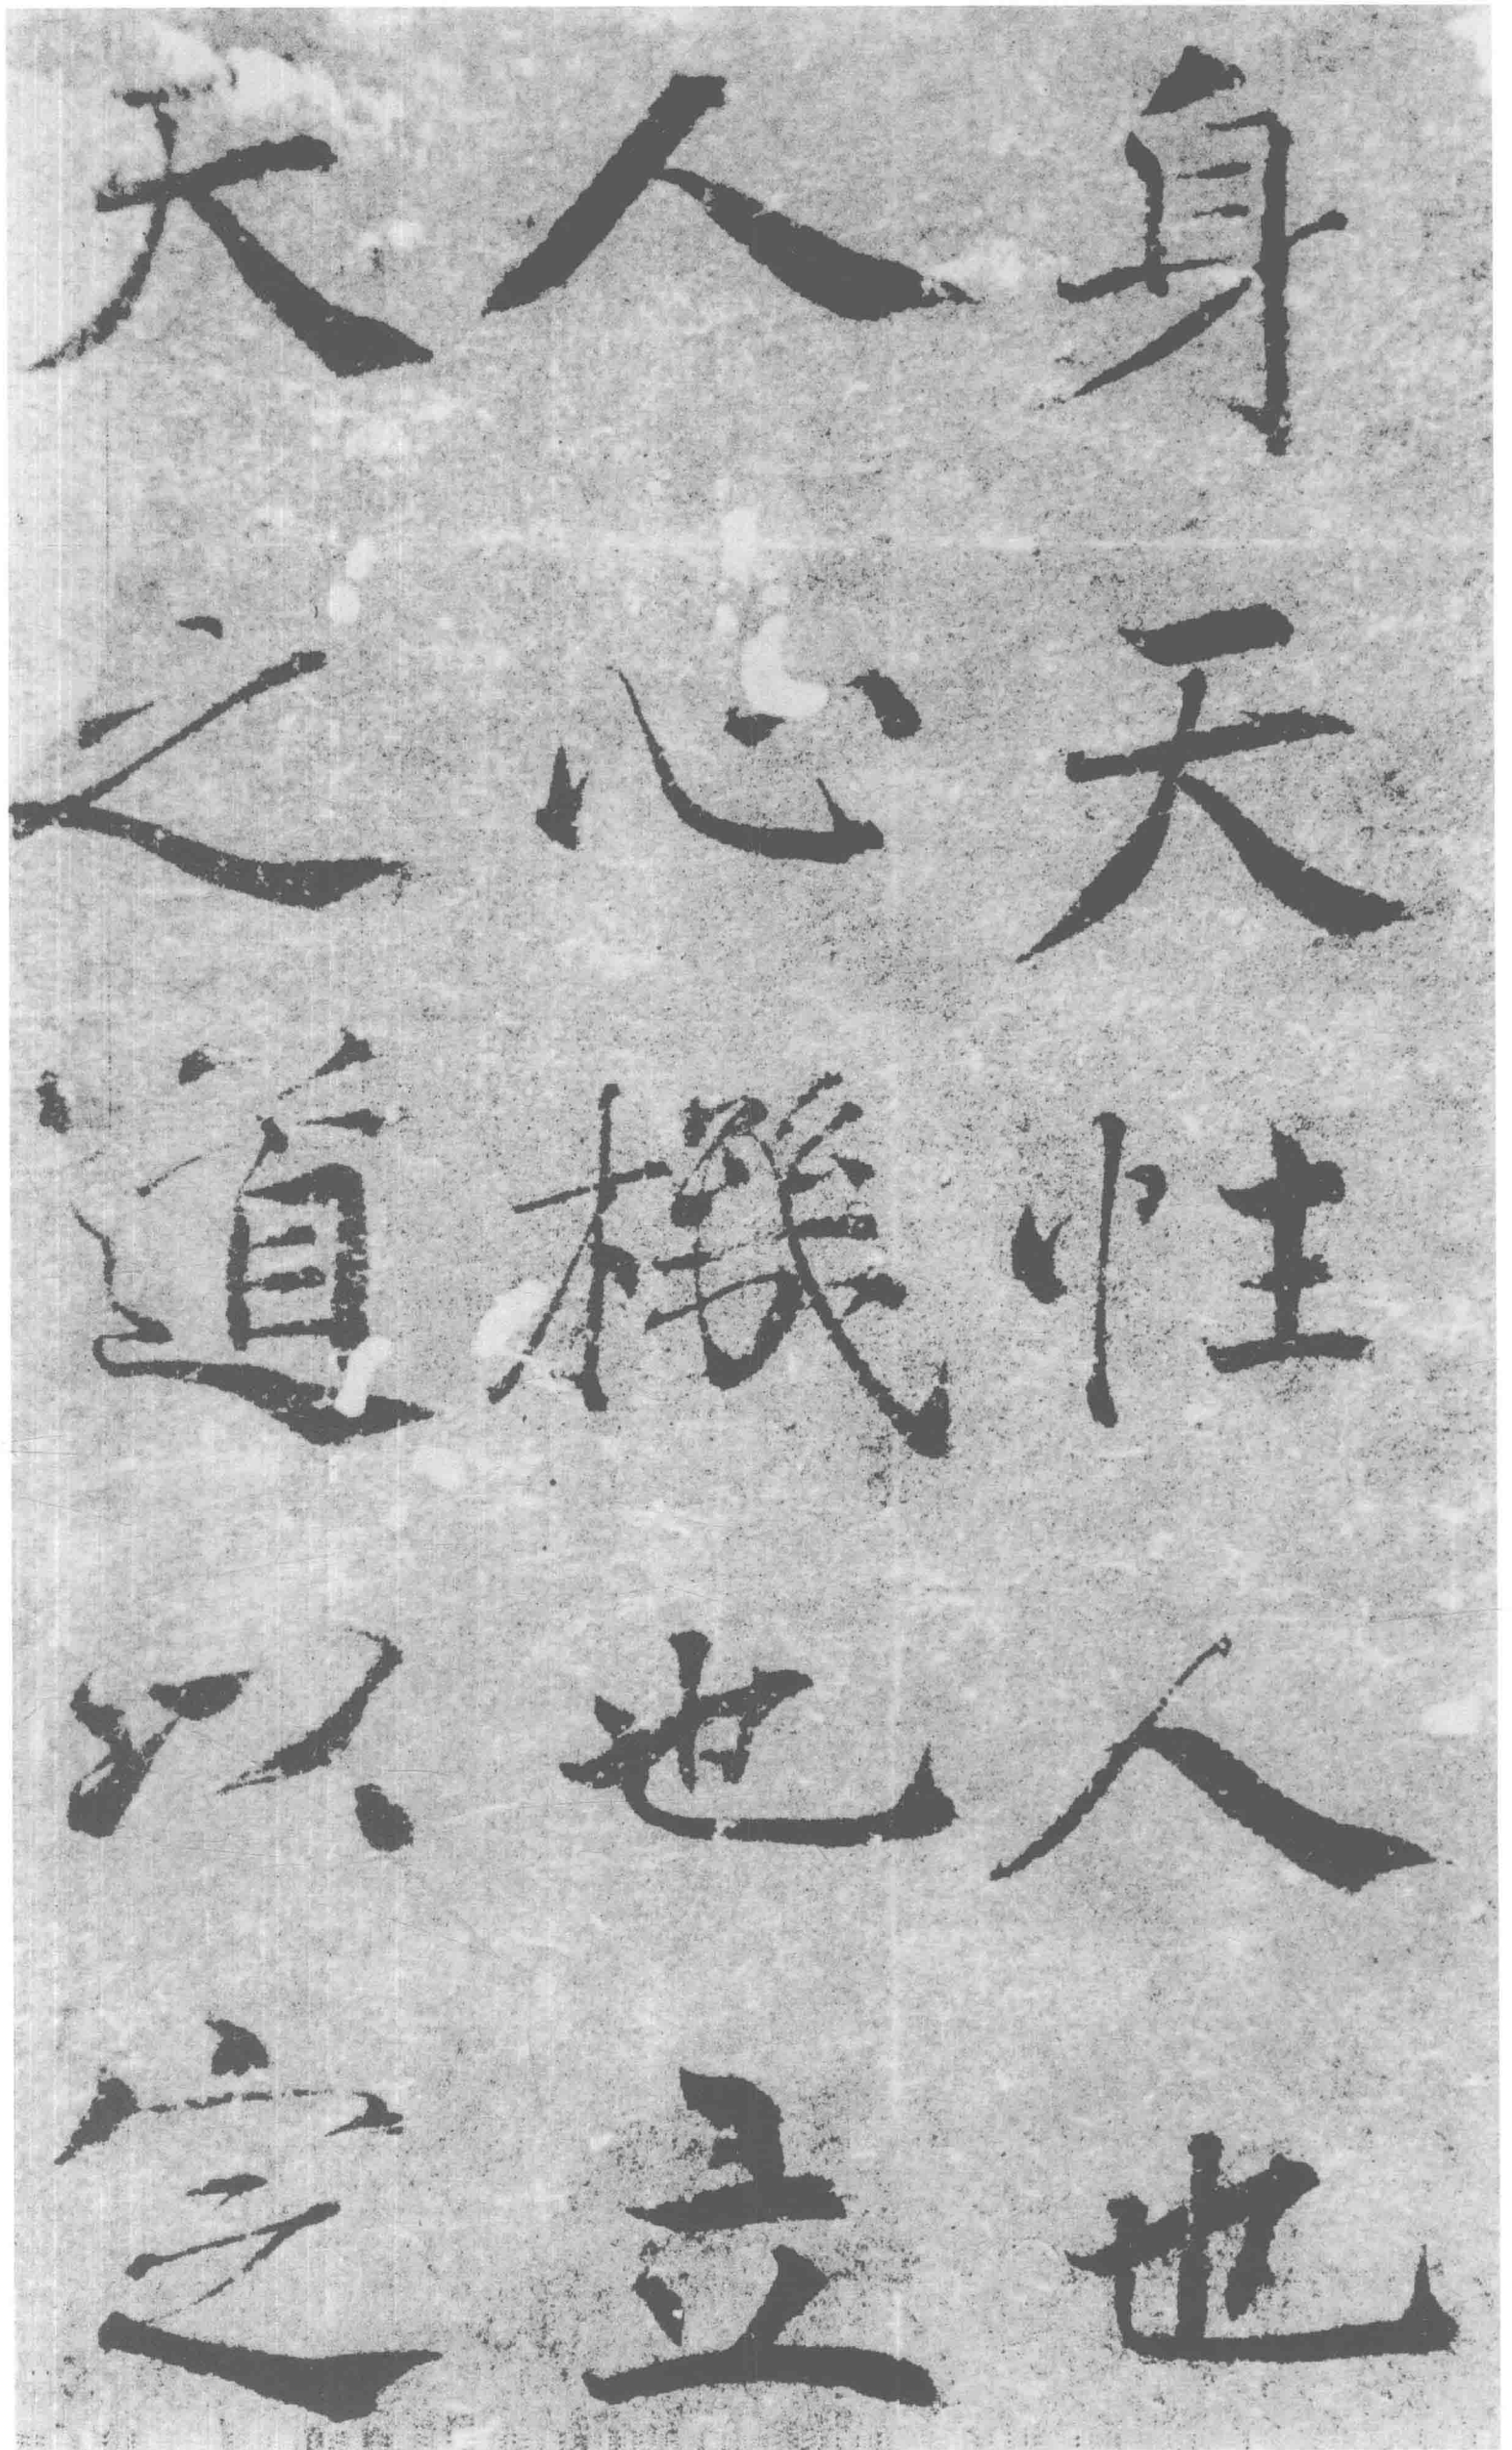 身天性人也
人心機也立
天之道以定